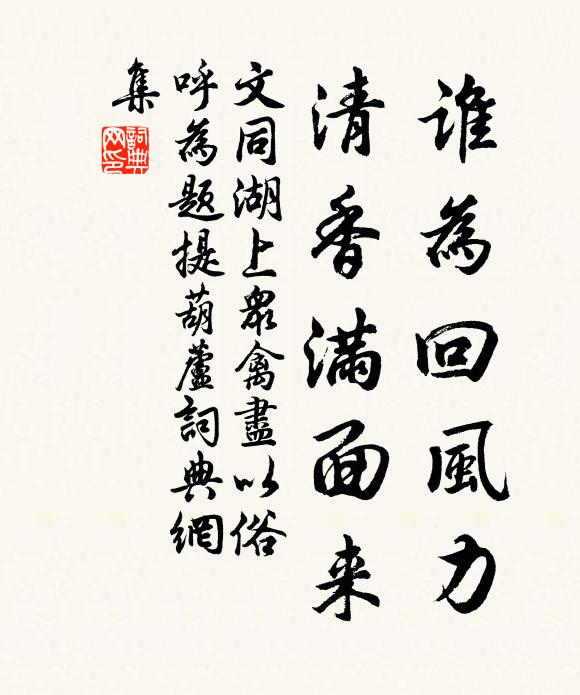 誰為回風力
清香滿面来
文同湖上眾禽盡以俗
呼為題提葫蘆詞典網
集
詞典
网印